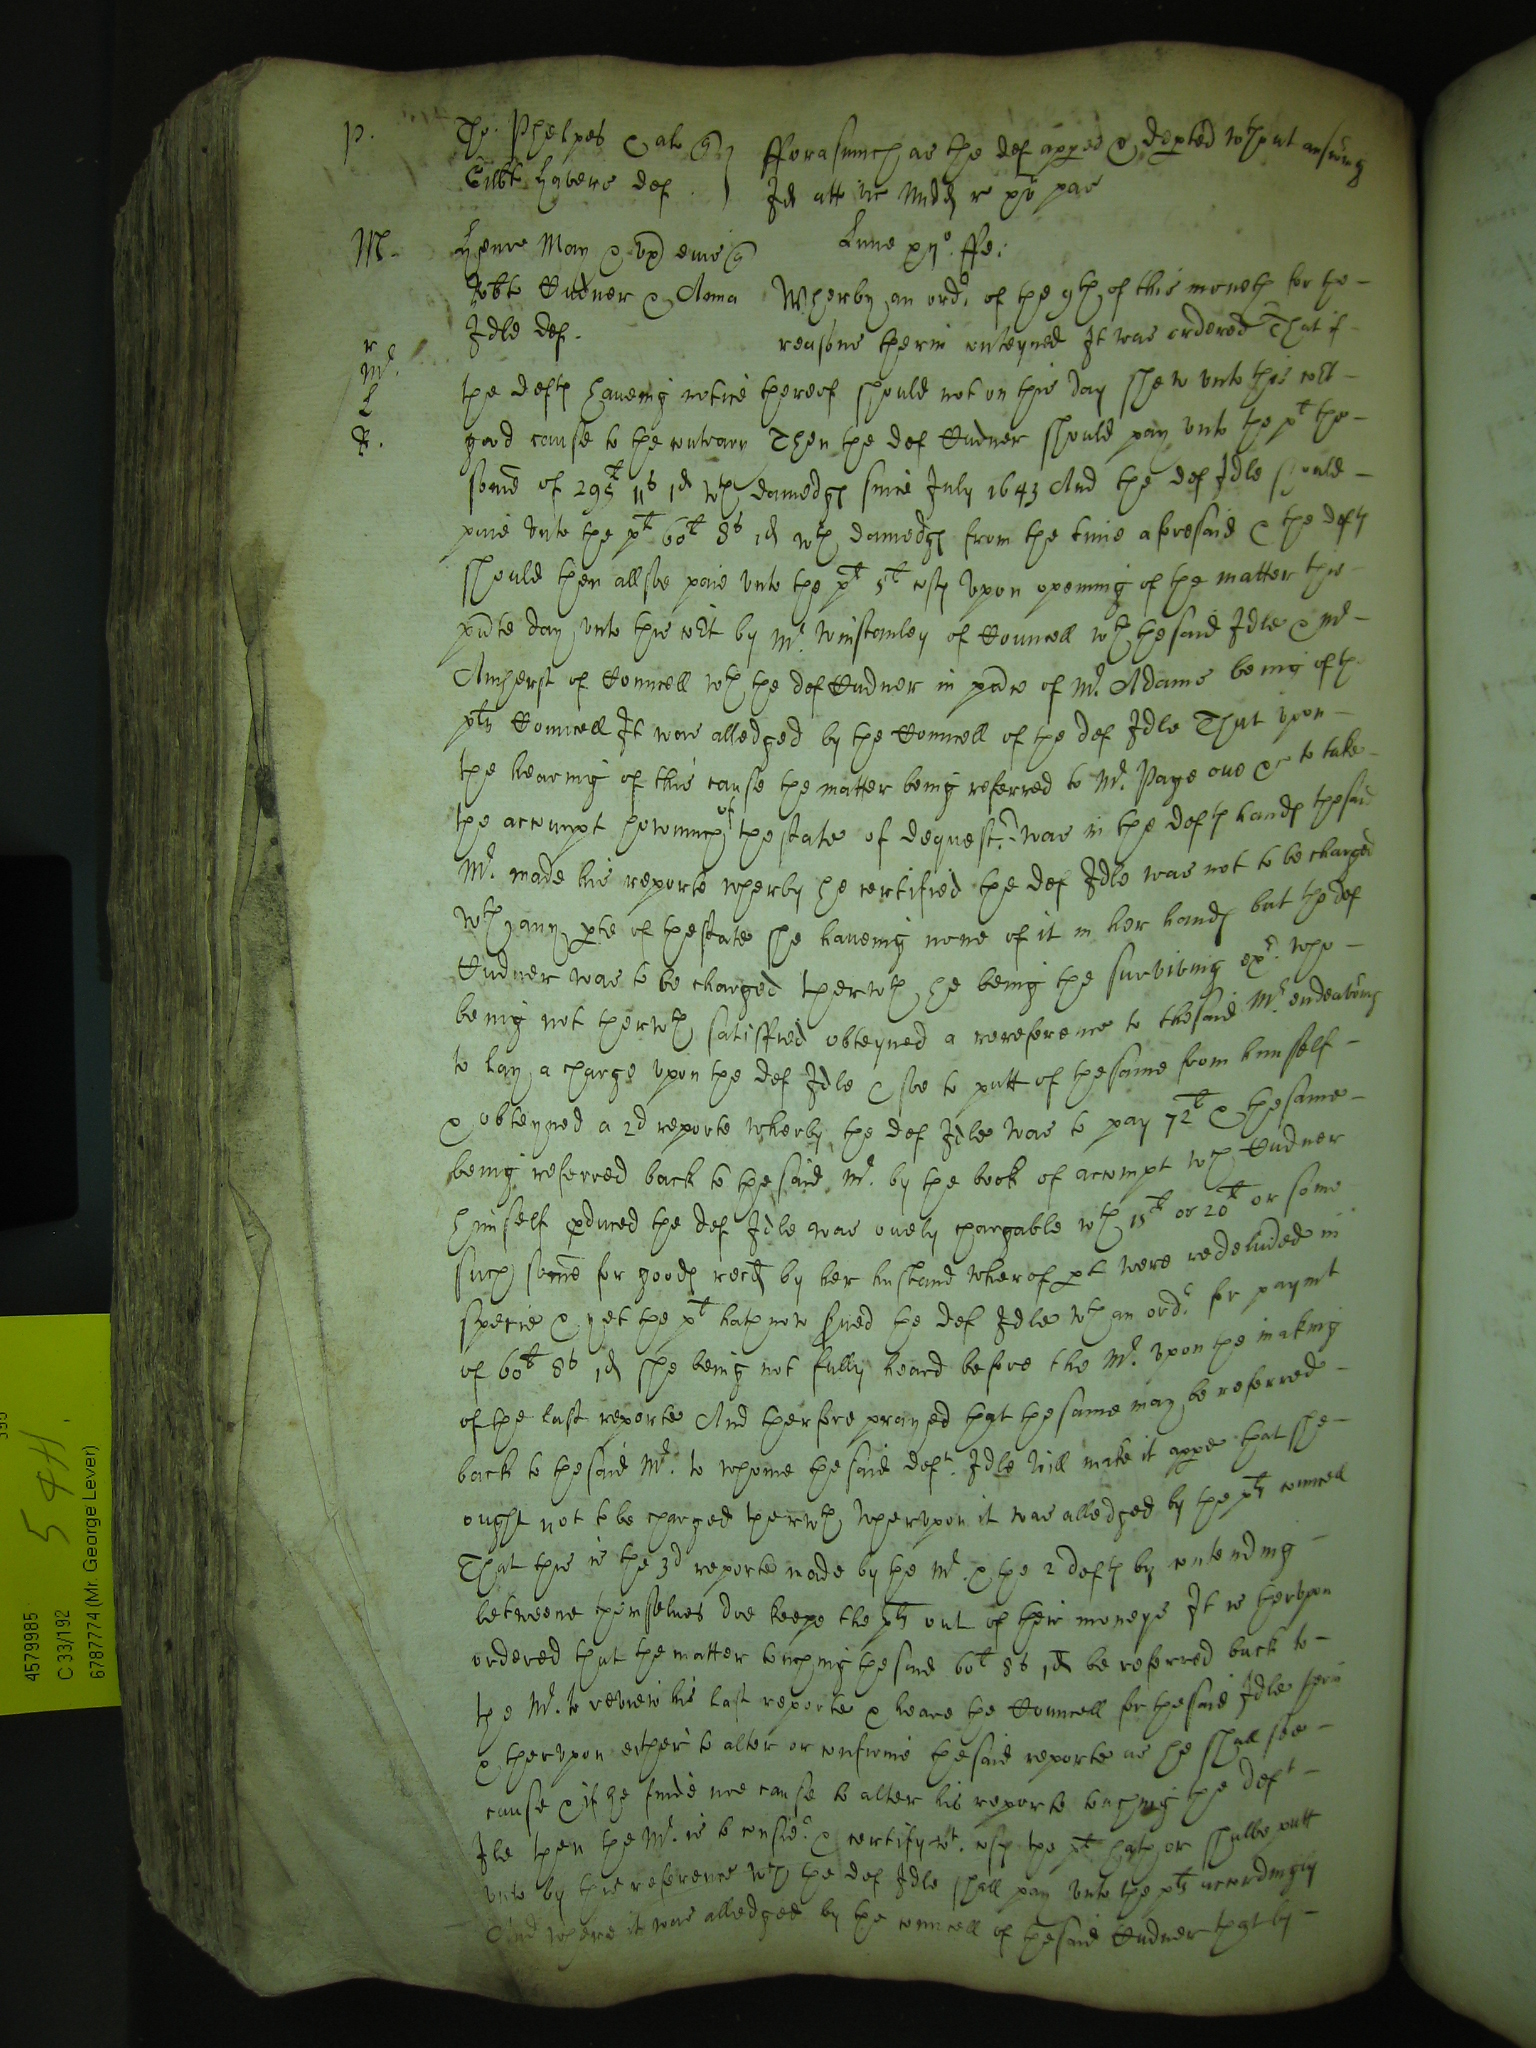 P.
Tho. Phelpes & al qr
fforasmuch as the def apped & depted wthout answing
Gilbt Havers def.
Id att vic Midd r
M.
Henr May & ux
Lune xijo. ffe:
Robte Kudner & Anna
Wherby an ordr. of the 9th of this moneth for the
Idle def.
reasons therin conteyned It was ordered That if
r
Mr.
L
R.
the defts haveing notice thereof should not on this day shew unto this cort
good cause to the contrary Then the def Kudner should pay unto the plt the
some of 295l 11s 1d wth damedgs since July 1643 And the def Idle should
paie unto the plt 60l 8s 1d wth damedgs from the time aforesaid & the defts
should then allsoe paie unto the plt 5l costs Upon opening of the matter this
psnte day unto this cort by Mr. Winstanley of Councell wth the said Idle & Mr
Amherst of Councell wth the def Kudner in psnce of Mr. Adams being of the
plts Councell It was alledged by the Councell of the def Idle That upon
the hearing of this cause the matter being referred to Mr. Page one &c to take
the accompt howmuch of thestate of was in the defts hands thesaid
Mr. made his reporte wherby he certified the def Idle was not to be charged
wth any pte of thestate she haveing none of it in her hands but the def
Kudner was to be charged therwth he being the surviving exr. who
being not therwth satisffied obteyned a rereference to thesaid Mr. endeavoring
to lay a charge upon the def Idle & soe to putt of thesame from himself
& obteyned a 2d reporte wherby the def Idle was to pay 72l & thesame
being referred back to thesaid Mr. by the book of accompt wch Kudner
himself pduced the def Idle was onely chargable wth 15l or 20l or some
such some for goods recd by her husband wherof pt were redeliuered in
specie & yet the plt hath now sued the def Idle wth an ordr. for paymt
of 60l 8s 1d she being not fully heard before the Mr. upon the making
of the last reporte And therfore prayed that thesame may be referred
back to thesaid Mr. to whome thesaid deft. Idle will make it appe that she
ought not to be charged therwth Wherupon it was alledged by the plts councell
That this is the 3d reporte made by the Mr. & the 2 defts by contending
betweene themselues doe keepe the plts out of their moneys It is therupon
ordered that the matter touching thesaid 60l 8s 1d be referred back to
the Mr. to review his last reporte & heare the Councell for thesaid Idle
& therupon either to alter or confirme thesaid reporte as he shall see
cause & if he finde noe cause to alter his reporte touching the deft
Ile then the Mr. is to considr. & certify wt. costs the plt hath or shalbe putt
unto by this reference wch the def Idle shall pay unto the plts accordingly
And where it was alledged by the councell of thesaid Kudner that by
54H
4579985
C 33/192
6787774 (Mr. George Lever)